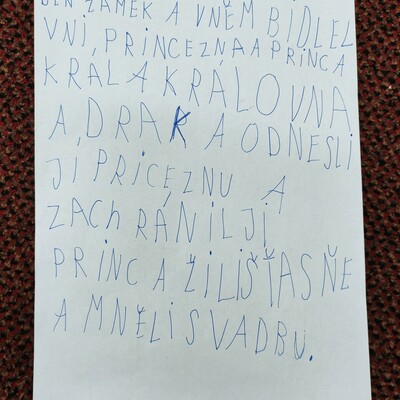 JEN ZÁMEK A VNĚM BIDLEL
VNÍ, PRINCEZŇA A PRINC A
KRÁL A KRÁLOVNA
A, DRAK A ODNESLI
JI PRICEZNU A
ZACH RÁNIL JI
PRINC A ŽILI ŠŤASŇE
A MNĚLI SVADBU.